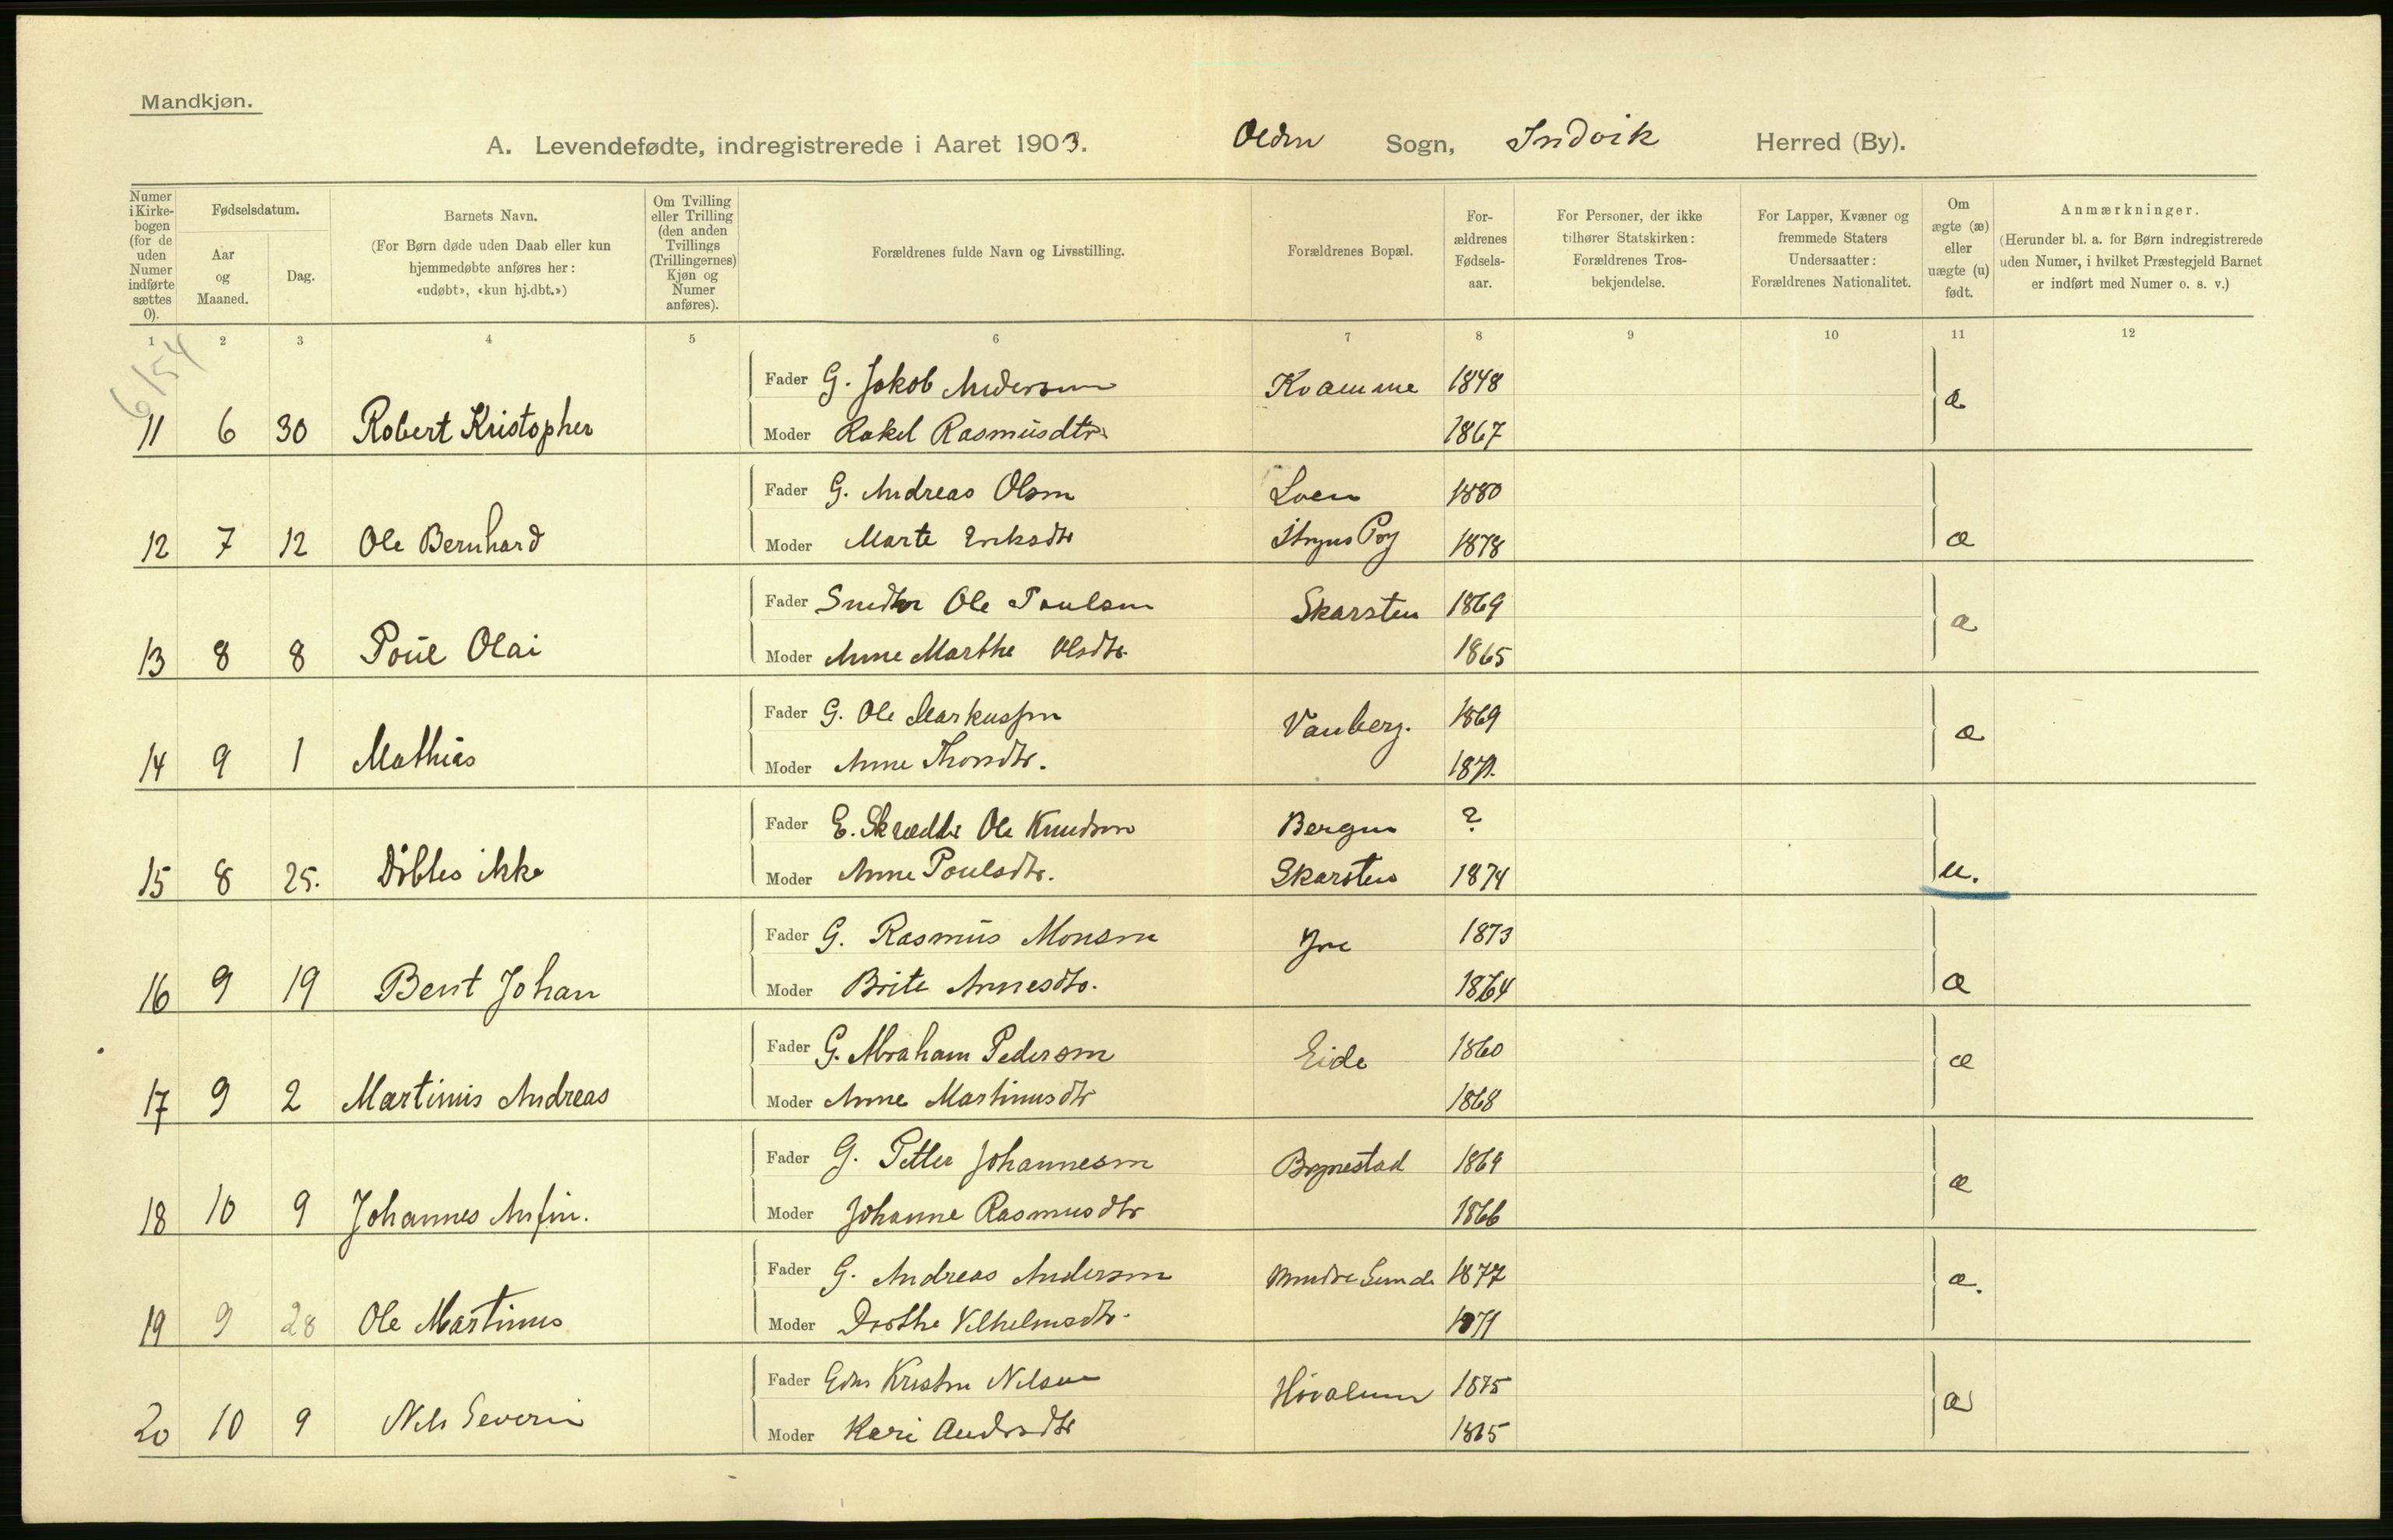 Mandkjøn.
A. Levendefødte, indregistrerede i Aaret 1903. Olden Sogn, Indvik Herred (By).
Numer i Kirkebogen (for de uden Numer indførte sættes 0).
Fødselsdatum.
Aar og Maaned.
Dag.
Barnets Navn.
(For Børn døde uden Daab eller kun hjemmedøbte anføres her: «udøbt», «kun hj.dbt.»)
Om Tvilling eller Trilling (den anden Tvillings (Trillingernes) Kjøn og Numer anføres).
Forældrenes fulde Navn og Livsstilling.
Forældrenes Bopæl.
Forældrenes Fødselsaar.
For Personer, der ikke tilhører Statskirken: Forældrenes Trosbekjendelse.
For Lapper, Kvæner og fremmede Staters Undersaatter: Forældrenes Nationalitet.
Om ægte (æ) eller uægte (u) født.
Anmærkninger.
(Herunder bl. a. for Børn indregistrerede uden Numer, i hvilket Præstegjeld Barnet er indført med Numer o. s. v.)
1 2 3 4 5 6 7 8 9 10 11 12
6154
Fader G. Jakob Andersen Kvamme 1848
11 6 30 Robert Kristopher Moder Rakel Rasmusdtr. 1867 æ
Fader G. Andreas Olsen Loen 1880
12 7 12 Ole Bernhard Moder Marte Eriksdtr Stryns Pgj 1878 æ
Fader Ole Poulsen Skarsten 1869
13 8 8 Poul Olai Moder Anne Marthe Olsdtr. 1865 æ
Fader G. Ole Markussen Vanberg. 1869
14 9 1 Mathias Moder Anne Thorsdtr. æ
Fader E. Skrædder Ole Knudsen Bergen ?
15 8 25. Døbtes ikke Moder Anne Poulsdtr. Skarsten 1874 u.
Fader G. Rasmus Monsen Yre 1873
16 9 19 Bent Johan Moder Brite Annesdtr. 1864 æ
Fader G. Abraham Pedersen Eide 1860
17 9 2 Martinus Andreas Moder Anne Martinusdtr 1868 æ
Fader G. Petter Johannesen Brynestad 1869
18 10 9 Johannes Anfin. Moder Johanne Rasmusdtr 1866 æ
Fader G. Andreas Andersen Sunde 1877
19 9 28 Ole Martinus Moder Dorthe Vilhelmsdtr. 1871 æ.
Fader Kristen Nilsen 1875
20 10 9 Nils Severin Moder Kari Andrsdtr 1865 æ